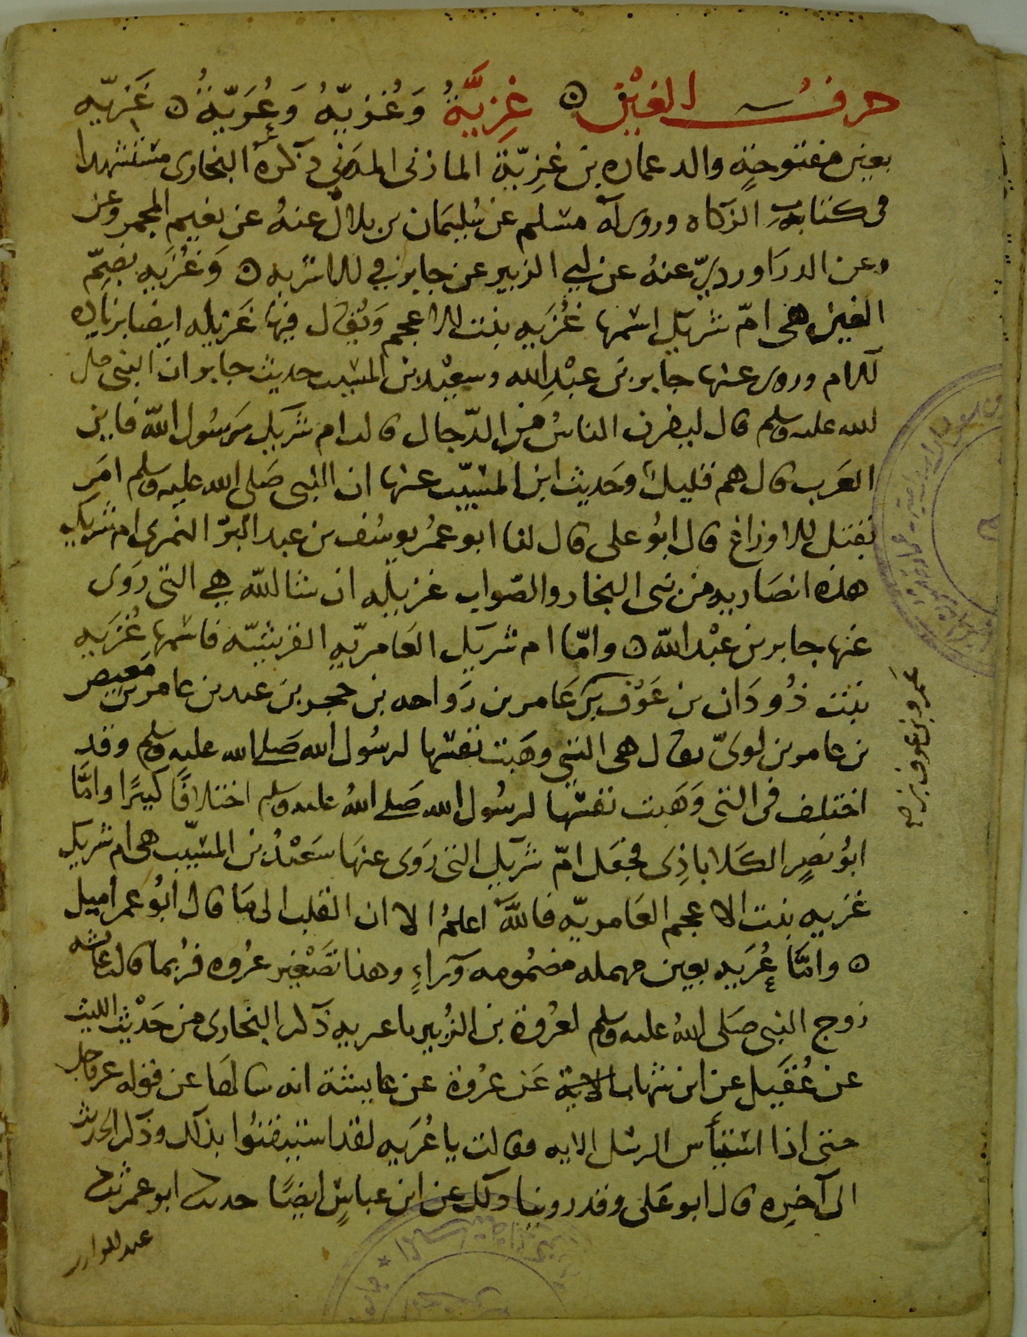 حرف الغين ۞ غَزِيَّةُ وَغُزَيّةُ وَعُرَيّةُ ۞ غَزيّه
بغين مفتوحةٍ والد عماره بن غَزِيّة المازنى المدني ذكره البخارى مستشهدا
فى كتاب الزكاه وروى له مسلم عن سُليمَان بن بلال عنهُ عن نعيم المجمر وعن
وعن الدرَاورديّ عنهُ عن ابي الزبير عن جابر في الاشربه ۞ وَغُزَيه بضمّ
الغين هى امّ شريك اسمها غُزَيه بنت الاعجم وَيُقال فيها غزيله ايضا بزياده
اللام وروى عنها جابر بن عبْدالله وسعيْد بن المسيب حديث جابر ان النبى صلى
لله عليه وسلم قال ليفرن الناسُ من الدّجال قالت ام شريك يرسُول الله فاين
العَرب قال هم قليل وحَديث ابن المسَيّب عنها ان النبى صَلى الله عليه وسلم امَر
بقتل الاوزاغ قال ابُو على قال لنا ابو عمُر يوسُف بن عبد البرّ النمرى ام شريك
هذه انصَاريه من بنى النجار والصّواب غزيله ان شا الله هي التى روَى
عنها جابر بن عبْدالله ۞ وامّا ام شريك العَامريّه القرشيّه فاسمها غُزَيه
بنت دُودَان بن عَوْف بن عَامر بن رَواحه بن حجر بن عبد بن عامر بن معيص
بن عامر بن لوىّ يقال هى التى وهَبت نفسَها لرسُول الله صَلى الله عليه وسلم وقد
اختلف فى التى وَهَبت نفسَها لرسُول الله صَلى اللهُ عليه وسلم اختلافًا كبيرًا وامَّا
ابُو نصرٍ الكَلاباذِى فجعَل امّ شريك التى رَوَى عنهَا سَعيْدُ بن المسَيّب هى ام شريك
غزيه بنت الاعجم العَامريّه فاللهُ اعلمُ الا ان القلب الى مَا قال ابُو عمر اميل
۞ وامّا عُرَيه بعين مهمله مضمُومه وَراءٍ وهذا تصْغير عرُوه فرُبما قالت عائشه
زوج النبى صَلى اللهُ عليه وسلم لعرُوة بن الزُبير يا عريه ذكر البخارى من حَدْيث الليث
عن عُقَيل عن ابن شهاب عَن عرُوة عن عايشة انه سالها عن قوله عز وجل
حتى اذا استيأس الرسُل الايه فقالت يا عُرَيه لقد استيقنُوا بذلك وذكر الحديث
الى آخرِه قال ابو عَلى وقد روينا ذلك عن ابن عباسٍ ايضًا حدثنا ابو عمر ثنا
عبد الوارث
عَمرو بن عوف بن صح